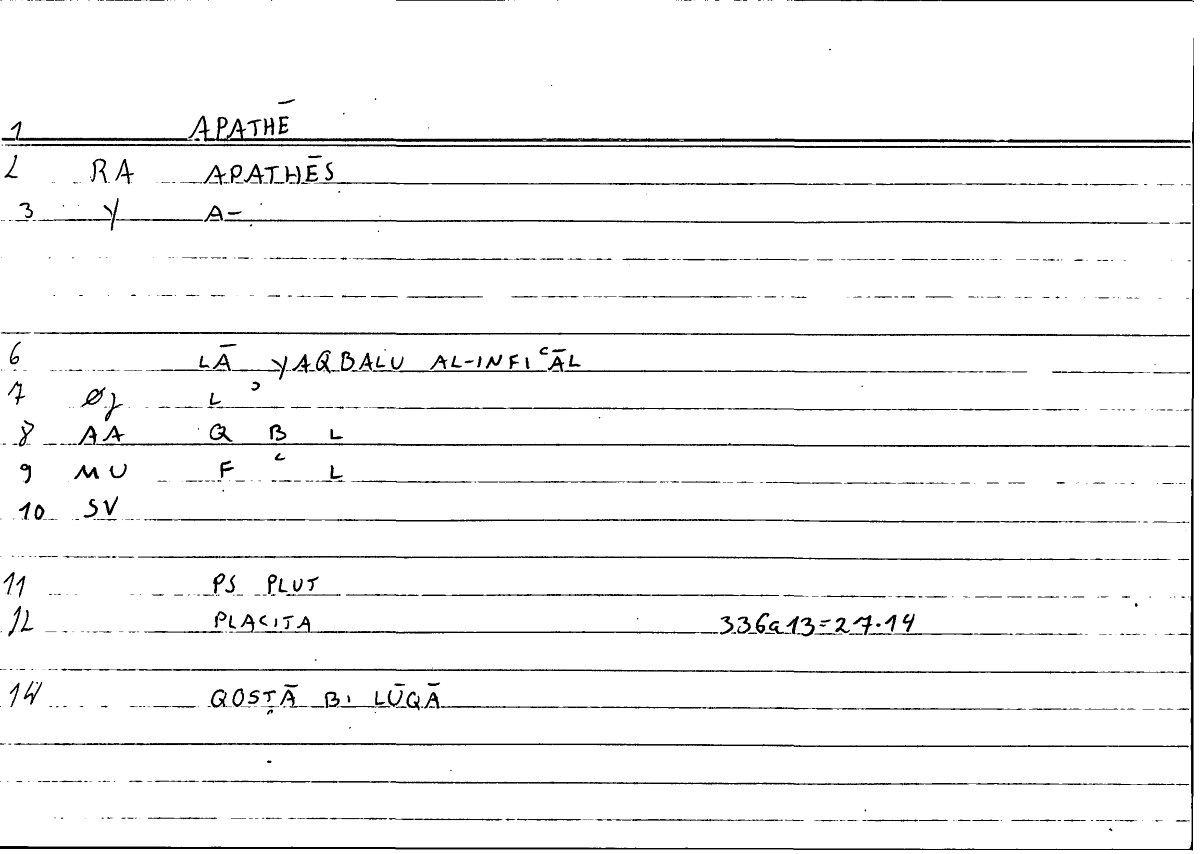 1 APATHĒ
2 RA APATHĒS
3 Y A-
6 LĀ YAQBALU AL-INFIʿĀL
7 L ʾ
8 AA Q B L
9 MU F ʿ L
10 SV
11 PS PLUT
12 PLACITA 336a13=27.14
14 QOSṬĀ B. LŪQĀ